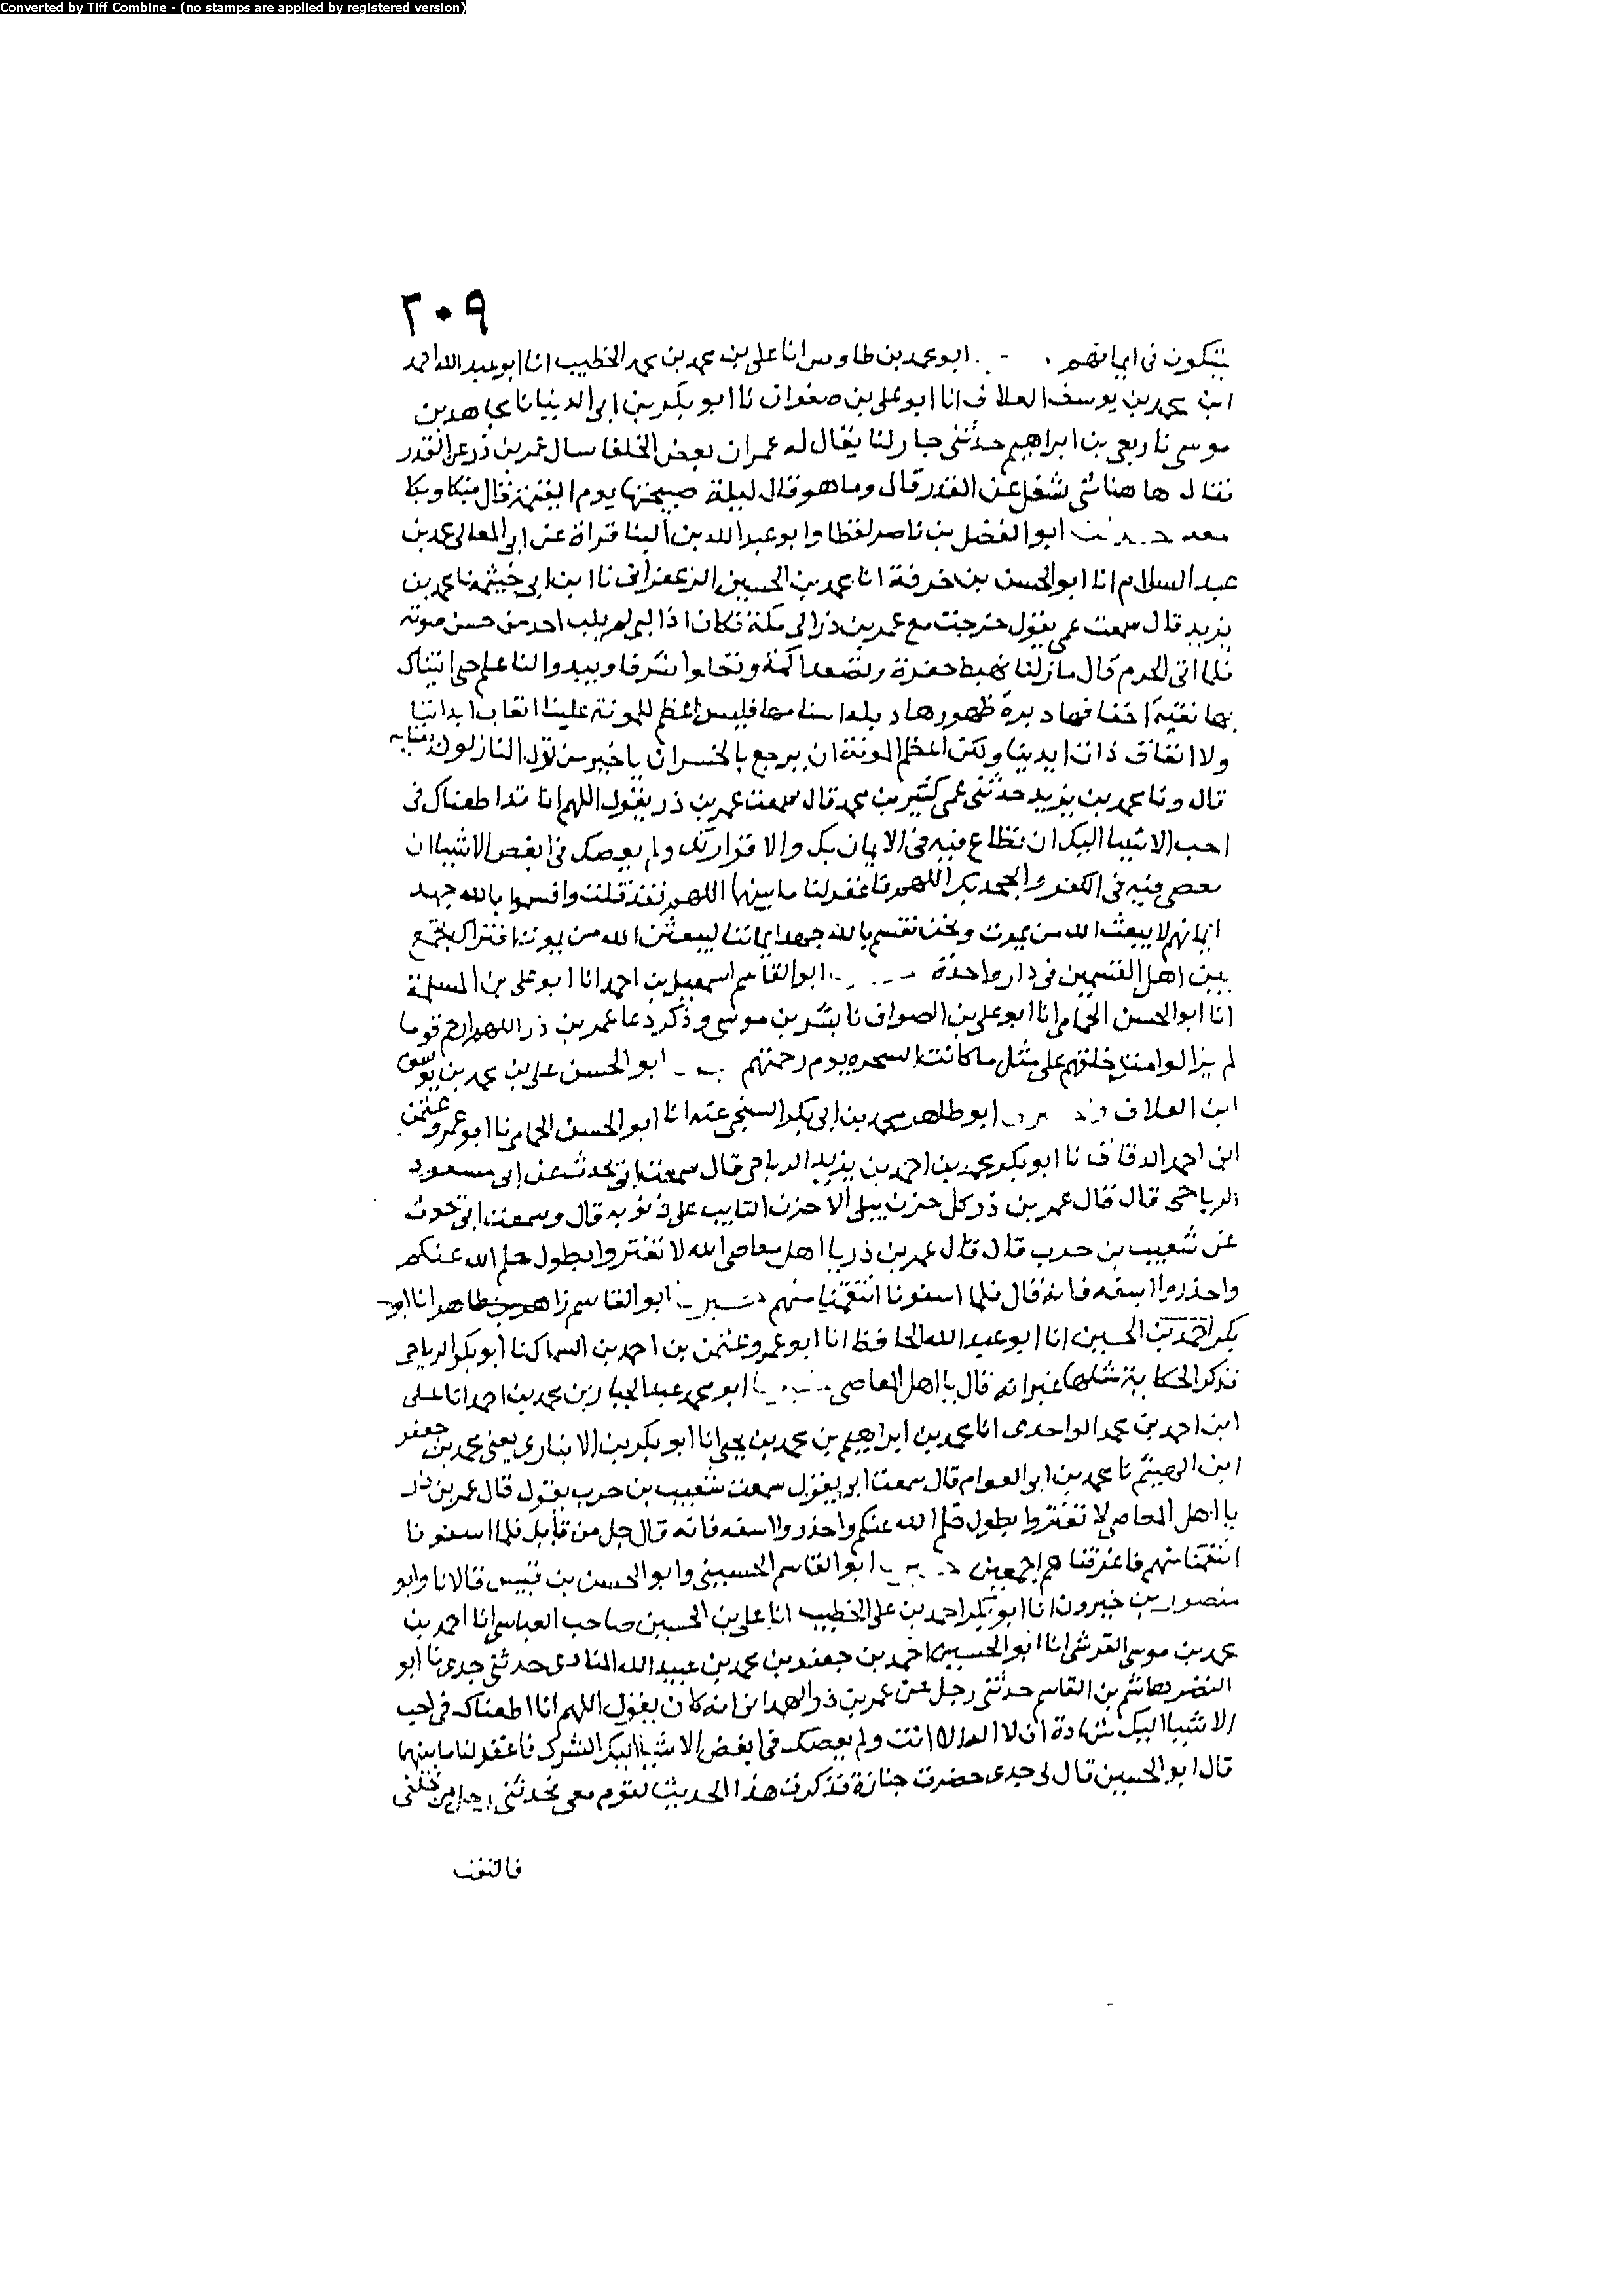 Converted by Tiff Combine - (no stamps are applied by registered version)
٢٠٩
يشكون في ايمانهم ابو محمد بن طاوس انا علي بن محمد بن محمد الخطيب انا ابو عبد الله احمد
ابن محمد بن يوسف العلاف انا ابو علي بن صفوان نا ابو بكر بن ابي الدنيا نا مجاهد بن
موسى نا ربعي بن ابراهيم حدثني جار لنا يقال له عمر ان بعض الخلفا سال عمر بن ذر عن القدر
فقال هاهنا شي شغل عن القدر قال وما هو قال ليلة صبيحتها يوم القيمة قال فبكا وبكا
معه ابو الفضل بن ناصر لفظا وابو عبد الله بن البنا قراة عن ابي المعالي محمد بن
عبد السلام انا ابو الحسن بن خرفة انا محمد بن الحسين الزعفراني نا ابن ابي خيثمة نا محمد بن
يزيد قال سمعت عمي يقول خرجت مع عمر بن ذر الى مكة فكان اذا لبى لم يلب احد من حسن صوته
فلما اتى الحرم قال مازلنا نهبط حفرة ونصعد اكمة ونعلوا شرفا ويبدوا لنا علم حتى اتيناك
بها نقبة اخفافها دبرة ظهورها ذبلة اسنامها فليس اعظم المونة علينا اتعاب ابداننا
ولا انفاق ذات ايدينا ولكن اعظم المونة ان نرجع بالخسران يا خير من نزل النازلون بفنايه
قال ونا محمد بن يزيد حدثني عمي كثير بن محمد قال سمعت عمر بن ذر يقول اللهم انا قد اطعناك في
احب الاشيا اليك ان تطاع فيه في الايمان بك والاقرار لك ولم نعصك في ابغض الاشيا ان
تعصى فيه في الكفر والجحد بك اللهم فاغفر لنا ما بينهما اللهم فقد قلت واقسموا بالله جهد
ايمانهم لا يبعث الله من يموت ونحن نقسم بالله جهد ايماننا ليبعثن الله من يموت افتراك تجمع
بين اهل القسمين في دار واحدة ابو القاسم اسمعيل بن احمد انا ابو علي بن المسلمة
انا ابو الحسن الحمامي انا ابو علي بن الصواف نا بشر بن موسى وذكر دعا عمر بن ذر اللهم ارحم قوما
لم يزالوا منذ خلقتهم على مثل ما كانت السحره يوم رحمتهم ابو الحسن علي بن محمد بن يوسف
ابن العلاف ابو طاهر محمد بن ابي بكر السنجي عنه انا ابو الحسن الحمامي نا ابو عمرو عثمن
ابن احمد الدقاق نا ابو بكر محمد بن احمد بن يزيد الرياحي قال سمعت ابي يحدث عن ابي مسعود
الرياحي قال قال عمر بن ذر كل حزن يبلى الا حزن التايب على ذنوبه قال وسمعت ابي يحدث
عن شعيب بن حرب قال قال عمر بن ذر يا اهل معاصي الله لا تغتروا بطول حلم الله عنكم
واحذروا اسفه فانه قال فلما اسفونا انتقمنا منهم ابو القاسم زاهر بن طاهر انا ابو
بكر احمد بن الحسين انا ابو عبد الله الحافظ انا ابو عمرو عثمن بن احمد بن السماك نا ابو بكر الرياحي
فذكر الحكاية مثلها غير انه قال يا اهل المعاصي ابو محمد عبد الجبار بن محمد بن احمد انا علي
ابن احمد بن محمد الواحدي انا محمد بن ابراهيم بن محمد بن يحيى انا ابو بكر بن الانباري يعني محمد بن جعفر
ابن الهيثم نا محمد بن ابو العوام قال سمعت ابي يقول سمعت شعيب بن حرب يقول قال عمر بن ذر
يا اهل المعاصي لا تغتروا بطول حلم الله عنكم واحذروا اسفه فانه قال جل من قايل فلما اسفونا
انتقمنا منهم فاغرقناهم اجمعين ابو القاسم الحسيني وابو الحسن بن قبيس قالا نا وابو
منصور بن خيرون انا ابو بكر احمد بن علي الخطيب انا علي بن الحسين صاحب العباسي انا احمد بن
محمد بن موسى القرشي انا ابو الحسين احمد بن جعفر بن محمد بن عبيد الله المنادي حدثني جدي نا ابو
النضر هاشم بن القاسم حدثني رجل عن عمر بن ذر الهمداني انه كان يقول اللهم انا اطعناك في احب
الاشيا اليك شهادة ان لا اله الا انت ولم نعصك في ابغض الاشيا اليك الشرك فاغفر لنا ما بينهما
قال ابو الحسين قال لي جدي حضرت جنازة فذكرت هذا الحديث لقوم معي فحدثني رجل من خلفي
فالتفت